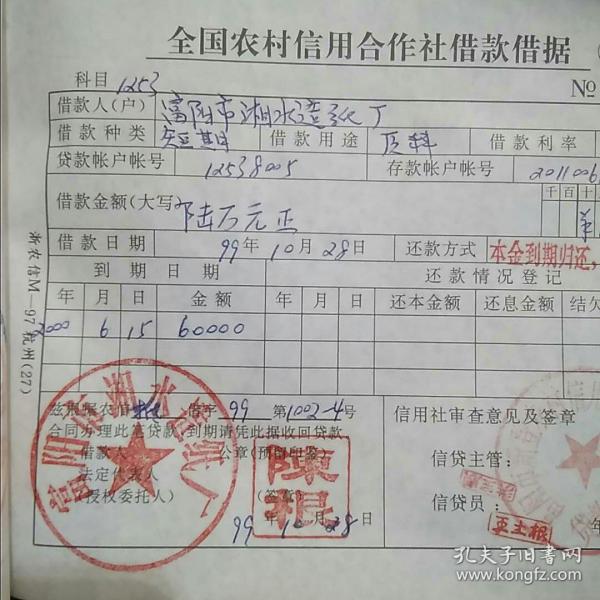 全国农村信用合作社借款借据
科目 1253 №
借款人(户) 富阳市湘水造纸厂
借款种类 短期 借款用途 原料 借款利率
贷款帐户帐号 12538005 存款帐户帐号 2011006
千百十
借款金额(大写) 陆万元正
借款日期 99年10月28日 还款方式 本金到期归还,
到期日期 还款情况登记
年 月 日 金额 年 月 日 还本金额 还息金额 结欠
2000 6 15 60000
兹根据农信 借字 99 第1002-4号
合同办理此笔贷款,到期请凭此据收回贷款
借款人 公章(预留印鉴)
法定代表人
(授权委托人) (签章)
99年10月28日
陈根
信用社审查意见及签章
信贷主管:
信贷员:
年
浙农信M—97 杭州(27)
孔夫子旧书网
www.kongfz.com